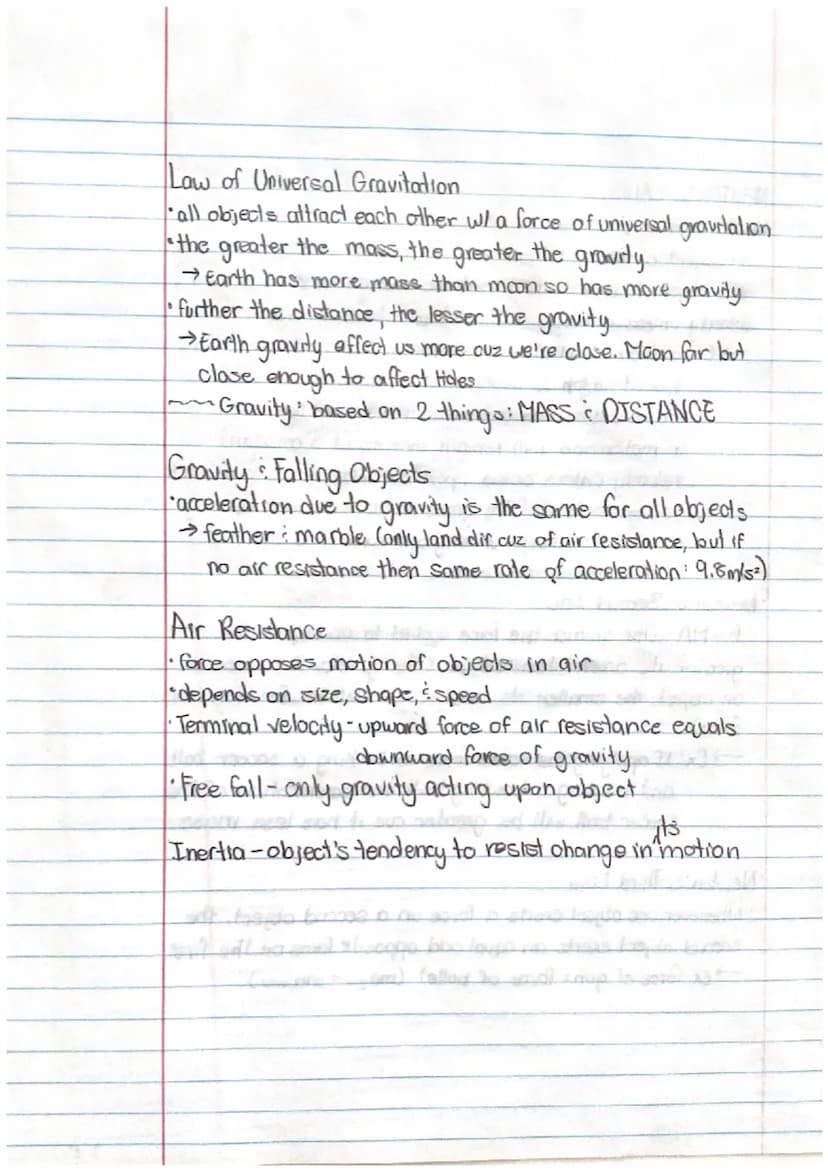 Law of Universal Gravitation
·all objects attract each other w/ a force of universal gravitation
·the greater the mass, the greater the gravity
→ Earth has more mass than moon so has more gravity
·further the distance, the lesser the gravity
→ Earth gravity affect us more cuz we're close. Moon far but
close enough to affect tides
~~~ Gravity: based on 2 things: MASS & DISTANCE
Gravity & Falling Objects
·acceleration due to gravity is the same for all objects
→ feather & marble (only land dif cuz of air resistance, but if
no air resistance then same rate of acceleration: 9.8m/s²)
Air Resistance
·force opposes motion of objects in air
·depends on size, shape, & speed
·Terminal velocity - upward force of air resistance equals
downward force of gravity
·Free fall - only gravity acting upon object
Inertia - object's tendency to resist change in its motion